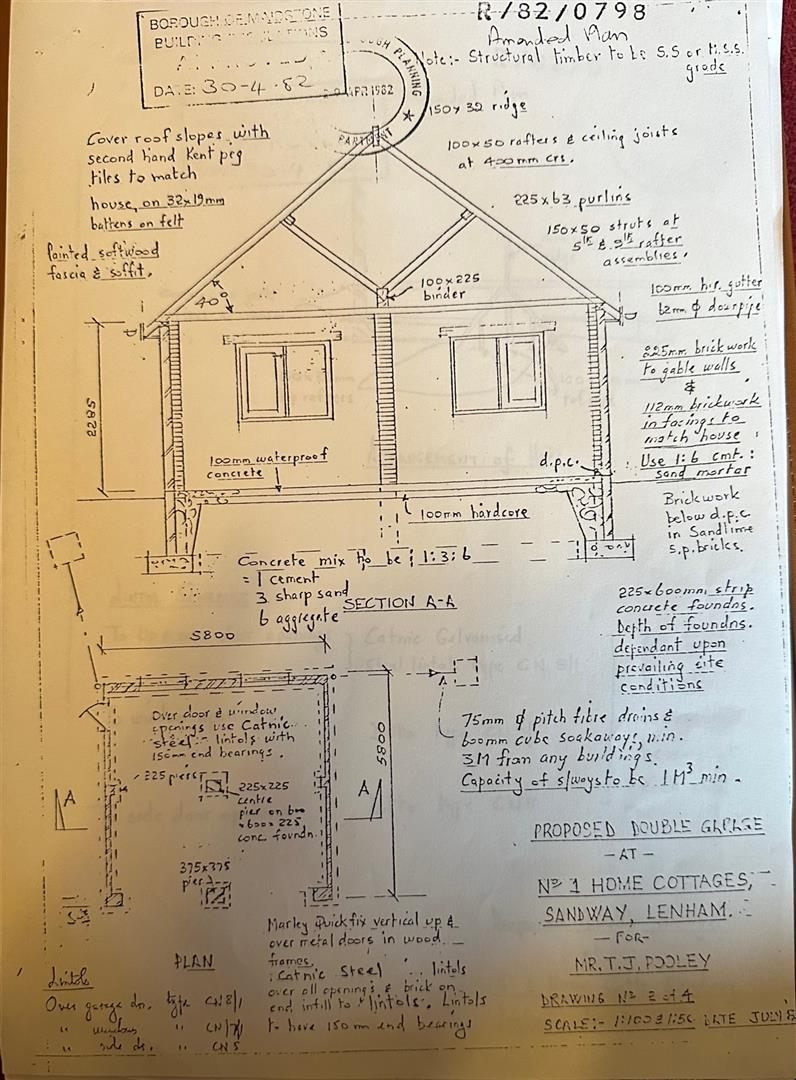 BOROUGH OF MAIDSTONE
BUILDING REGULATIONS
DATE: 30-4-82
PLANNING
APR 1982
R/82/0798
Amended Plan
Note:- Structural timber to be S.S or M.S.S.
grade
150x32 ridge
100x50 rafters & ceiling joists
at 400mm crs.
Cover roof slopes with
second hand Kent peg
tiles to match
house, on 32x19mm
battens on felt
225x63 purlins
150x50 struts at
5th & 9th rafter
assemblies.
Painted softwood
fascia & soffit.
40°
100x225
binder
100mm h.r. gutter
62mm φ downpipe
225mm brickwork
to gable walls
&
112mm brickwork
in facings to
match house
Use 1:6 cmt:
sand mortar
2285
100mm waterproof
concrete
d.p.c.
100mm hardcore
Brickwork
below d.p.c
in Sandlime
s.p. bricks.
Concrete mix to be 1:3:6
= 1 cement
3 sharp sand
6 aggregate
SECTION A-A
225x600mm strip
concrete foundns.
Depth of foundns.
dependant upon
prevailing site
conditions
5800
Over door & window
openings use Catnic
steel lintols with
150mm end bearings.
225 piers
225x225
centre
pier on 600
x600x225
conc foundn.
A
A
5800
375x375
pier
75mm φ pitch fibre drains &
600mm cube soakaways, min.
3M from any buildings.
Capacity of s/ways to be 1M³ min.
PROPOSED DOUBLE GARAGE
-AT-
Nº 1 HOME COTTAGES,
SANDWAY, LENHAM.
-FOR-
MR. T.J. POOLEY
DRAWING Nº 2 of 4
SCALE:- 1:100 & 1:50 DATE JULY 8
PLAN
Marley Quickfix vertical up &
over metal doors in wood
frames.
Catnic Steel lintols
over all openings & brick on
end infill to lintols. Lintols
to have 150mm end bearings
Lintols
Over garage dr. type CN8/1
" windows " CN/7/1
" side dr. " CN5